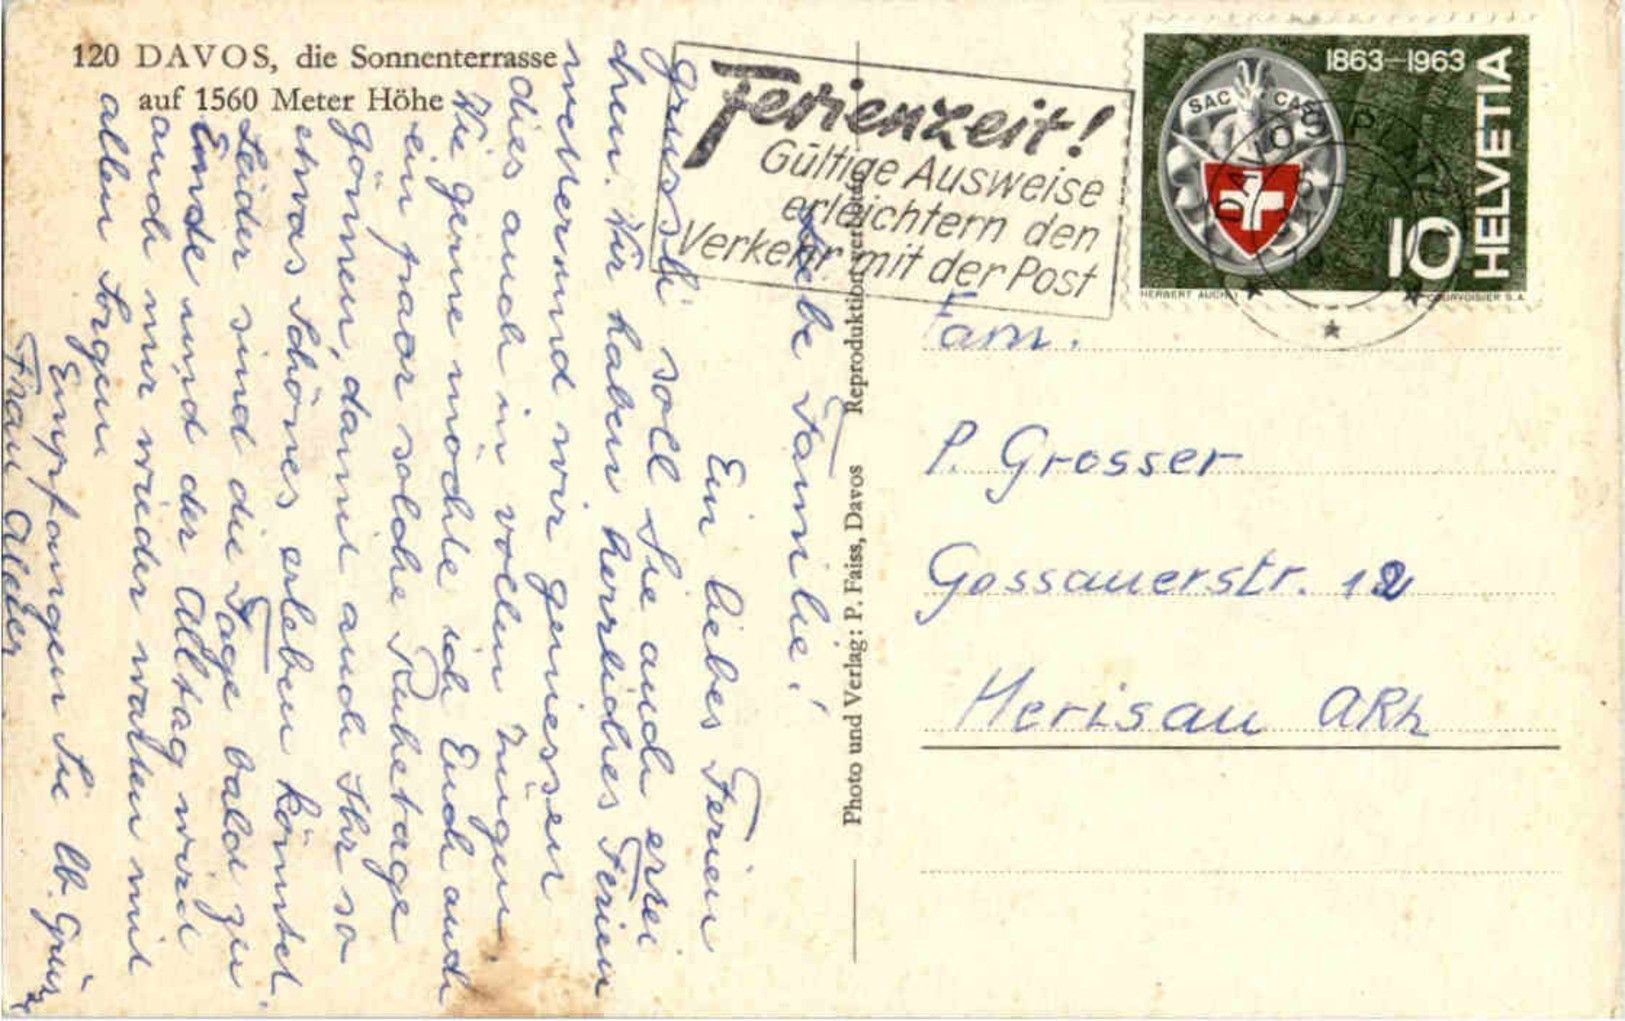 120 DAVOS, die Sonnenterrasse
auf 1560 Meter Höhe
Ferienzeit!
Gültige Ausweise
erleichtern den
Verkehr mit der Post
1863–1963
HELVETIA
SAC CAS
10
HERBERT AUCHLI
COURVOISIER S.A.
DAVOS PL
Liebe Familie!
Ein liebes Ferien
grüssli soll Sie auch errei
chen. Wir haben herrliches Ferien
wetter und wir geniessen
dies auch in vollen Zügen
Wie gerne möchte ich Euch auch
ein paar solche Ruhetage
gönnen, damit auch Ihr so
etwas Schönes erleben könntet.
Leider sind die Tage bald zu
Ende und der Alltag wird
auch mir wieder warten mit
allen Sorgen
Empfangen Sie lb. Grüsse
Frau
Photo und Verlag: P. Faiss, Davos Reproduktion verboten
Fam.
P. Grosser
Gossauerstr. 12
Herisau ARh